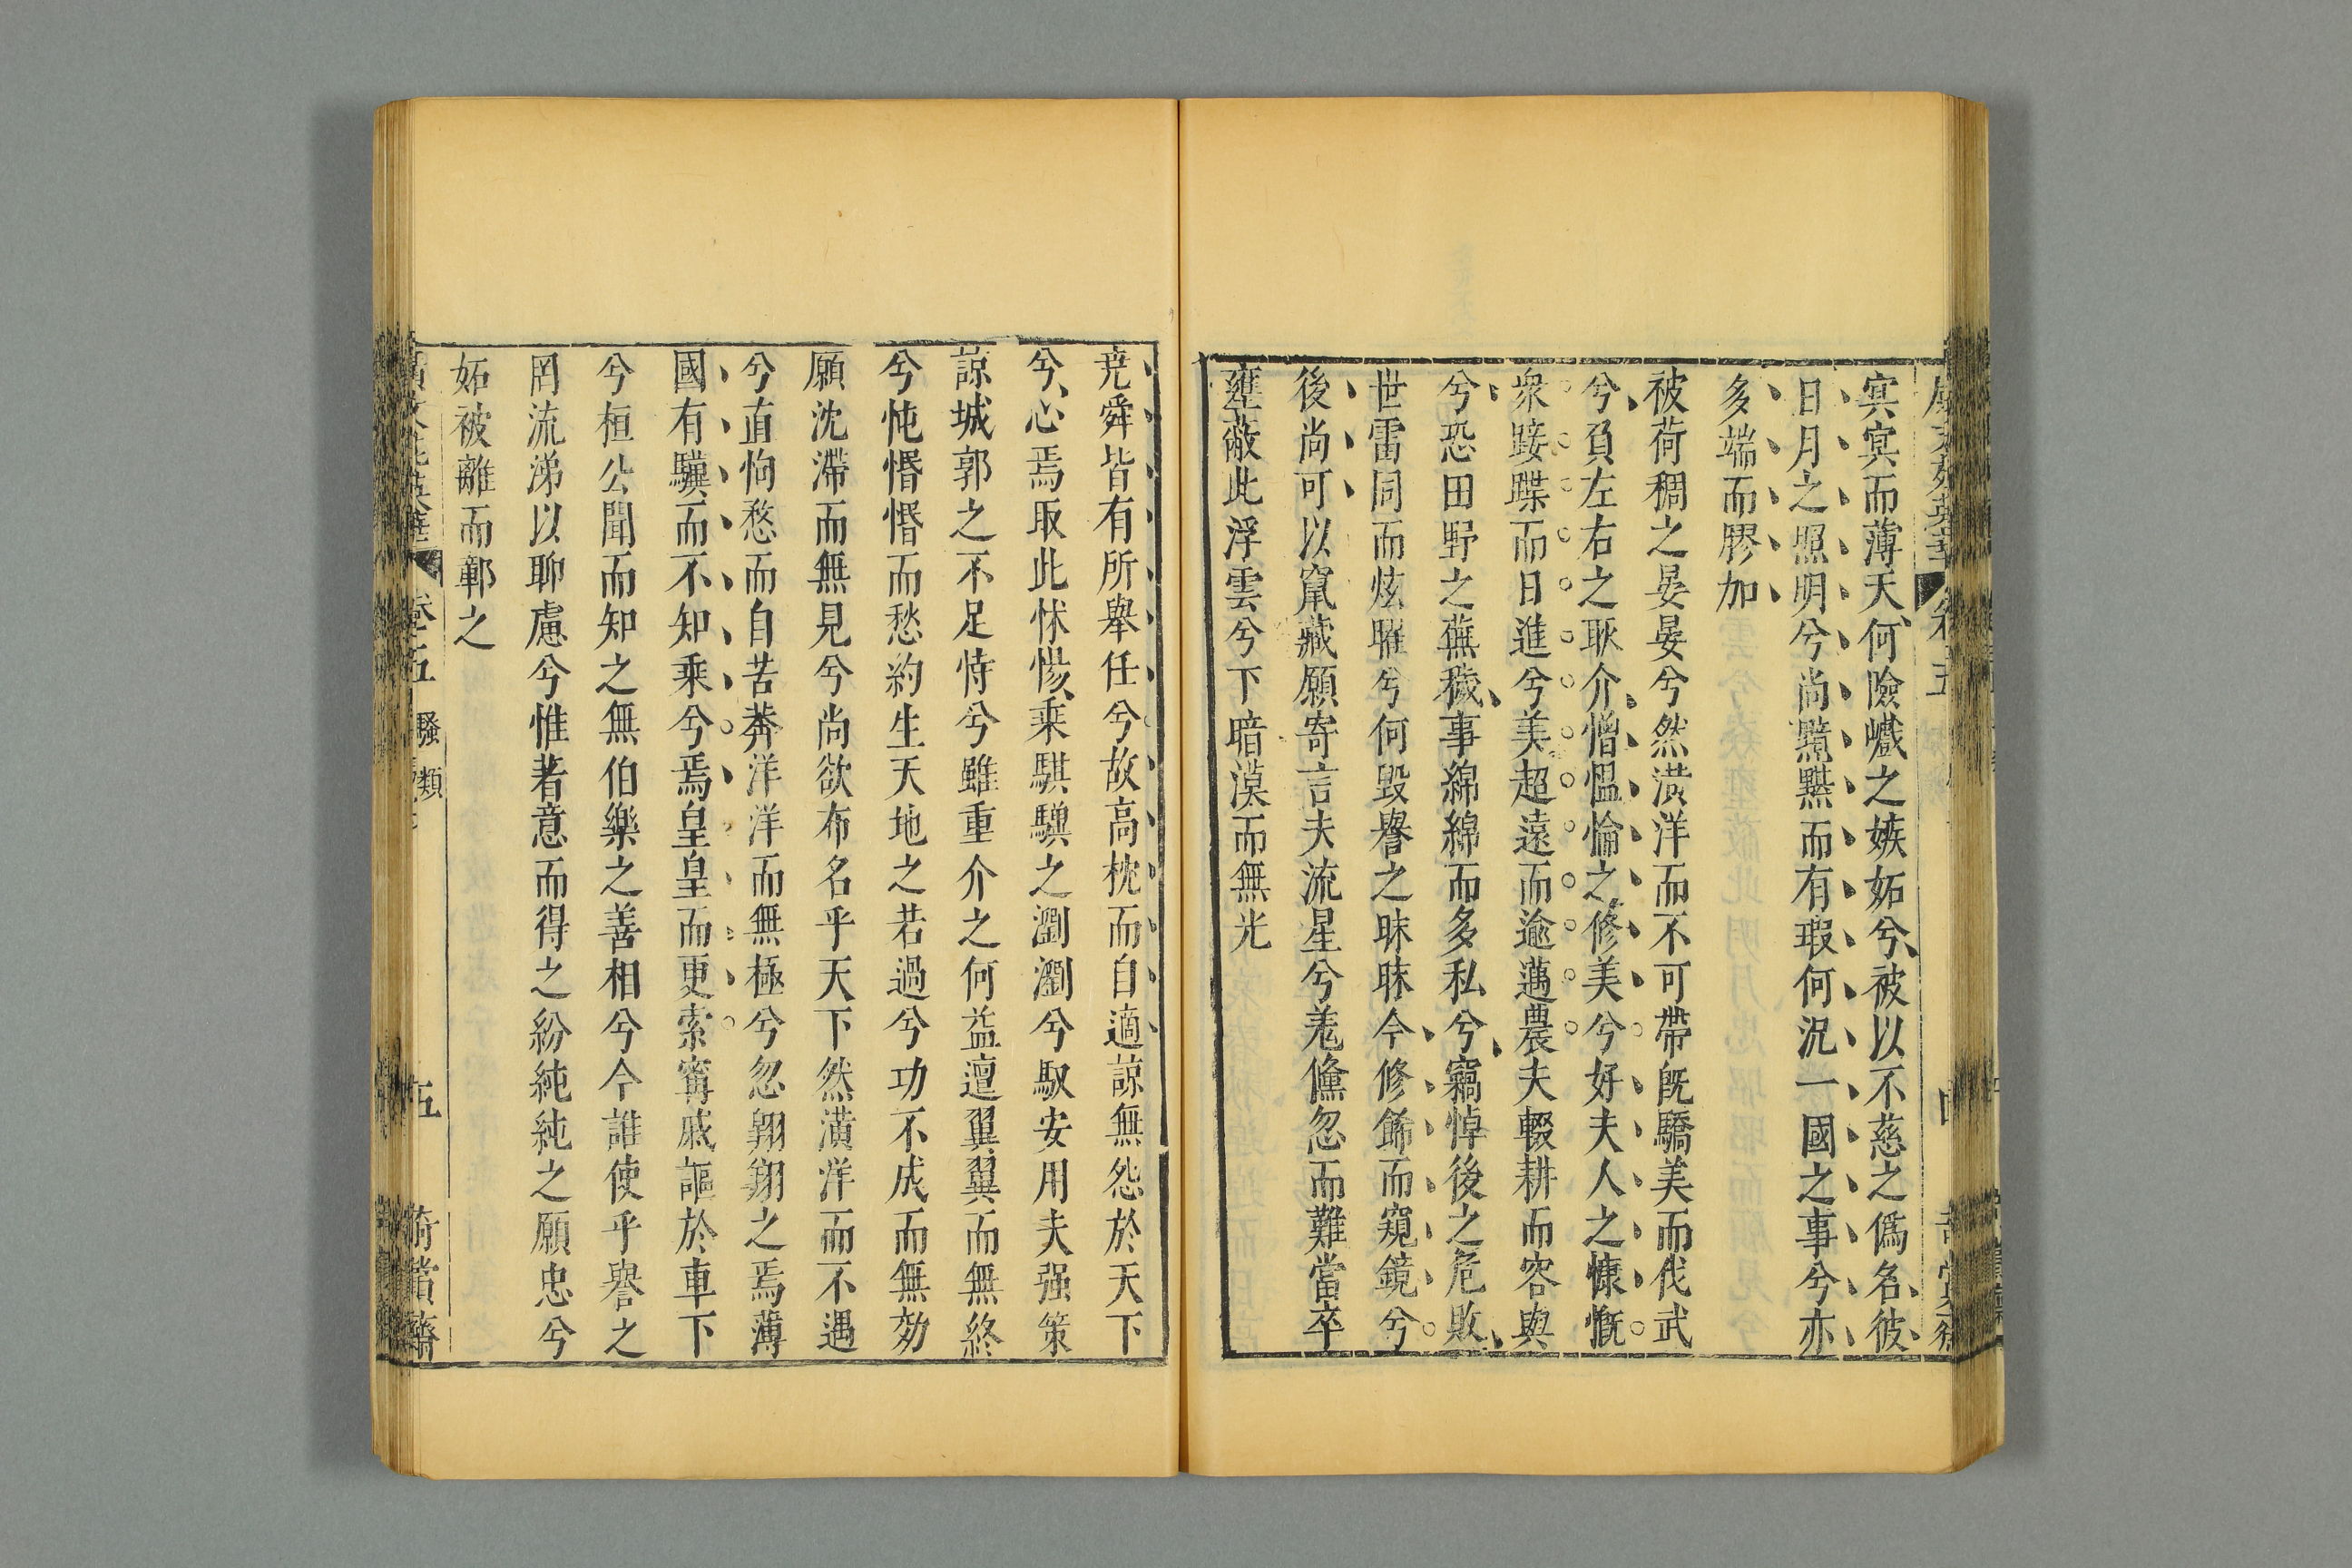 冥冥而薄天何險巇之嫉妬兮被以不慈之僞名彼
日月之照明兮尚黯黮而有瑕何況一國之事兮亦
多端而膠加
被荷裯之晏晏兮然潢洋而不可帶旣驕美而伐武
兮負左右之耿介憎慍惀之修美兮好夫人之慷慨
衆踥蹀而日進兮美超遠而逾邁農夫輟耕而容與
兮恐田野之蕪穢事綿綿而多私兮竊悼後之危敗
世雷同而炫曜兮何毀譽之昧昧今修飾而窺鏡兮
後尚可以竄藏願寄言夫流星兮羌儵忽而難當卒
壅蔽此浮雲兮下暗漠而無光
堯舜皆有所舉任兮故高枕而自適諒無怨於天下
兮心焉取此怵惕乘騏驥之瀏瀏兮馭安用夫强策
諒城郭之不足恃兮雖重介之何益邅翼翼而無終
兮忳惛惛而愁約生天地之若過兮功不成而無効
願沈滯而無見兮尚欲布名乎天下然潢洋而不遇
兮直怐愗而自苦莽洋洋而無極兮忽翱翔之焉薄
國有驥而不知乘兮焉皇皇而更索甯戚謳於車下
兮桓公聞而知之無伯樂之善相兮今誰使乎譽之
罔流涕以聊慮兮惟著意而得之紛純純之願忠兮
妬被離而鄣之
卷五 騷類 五